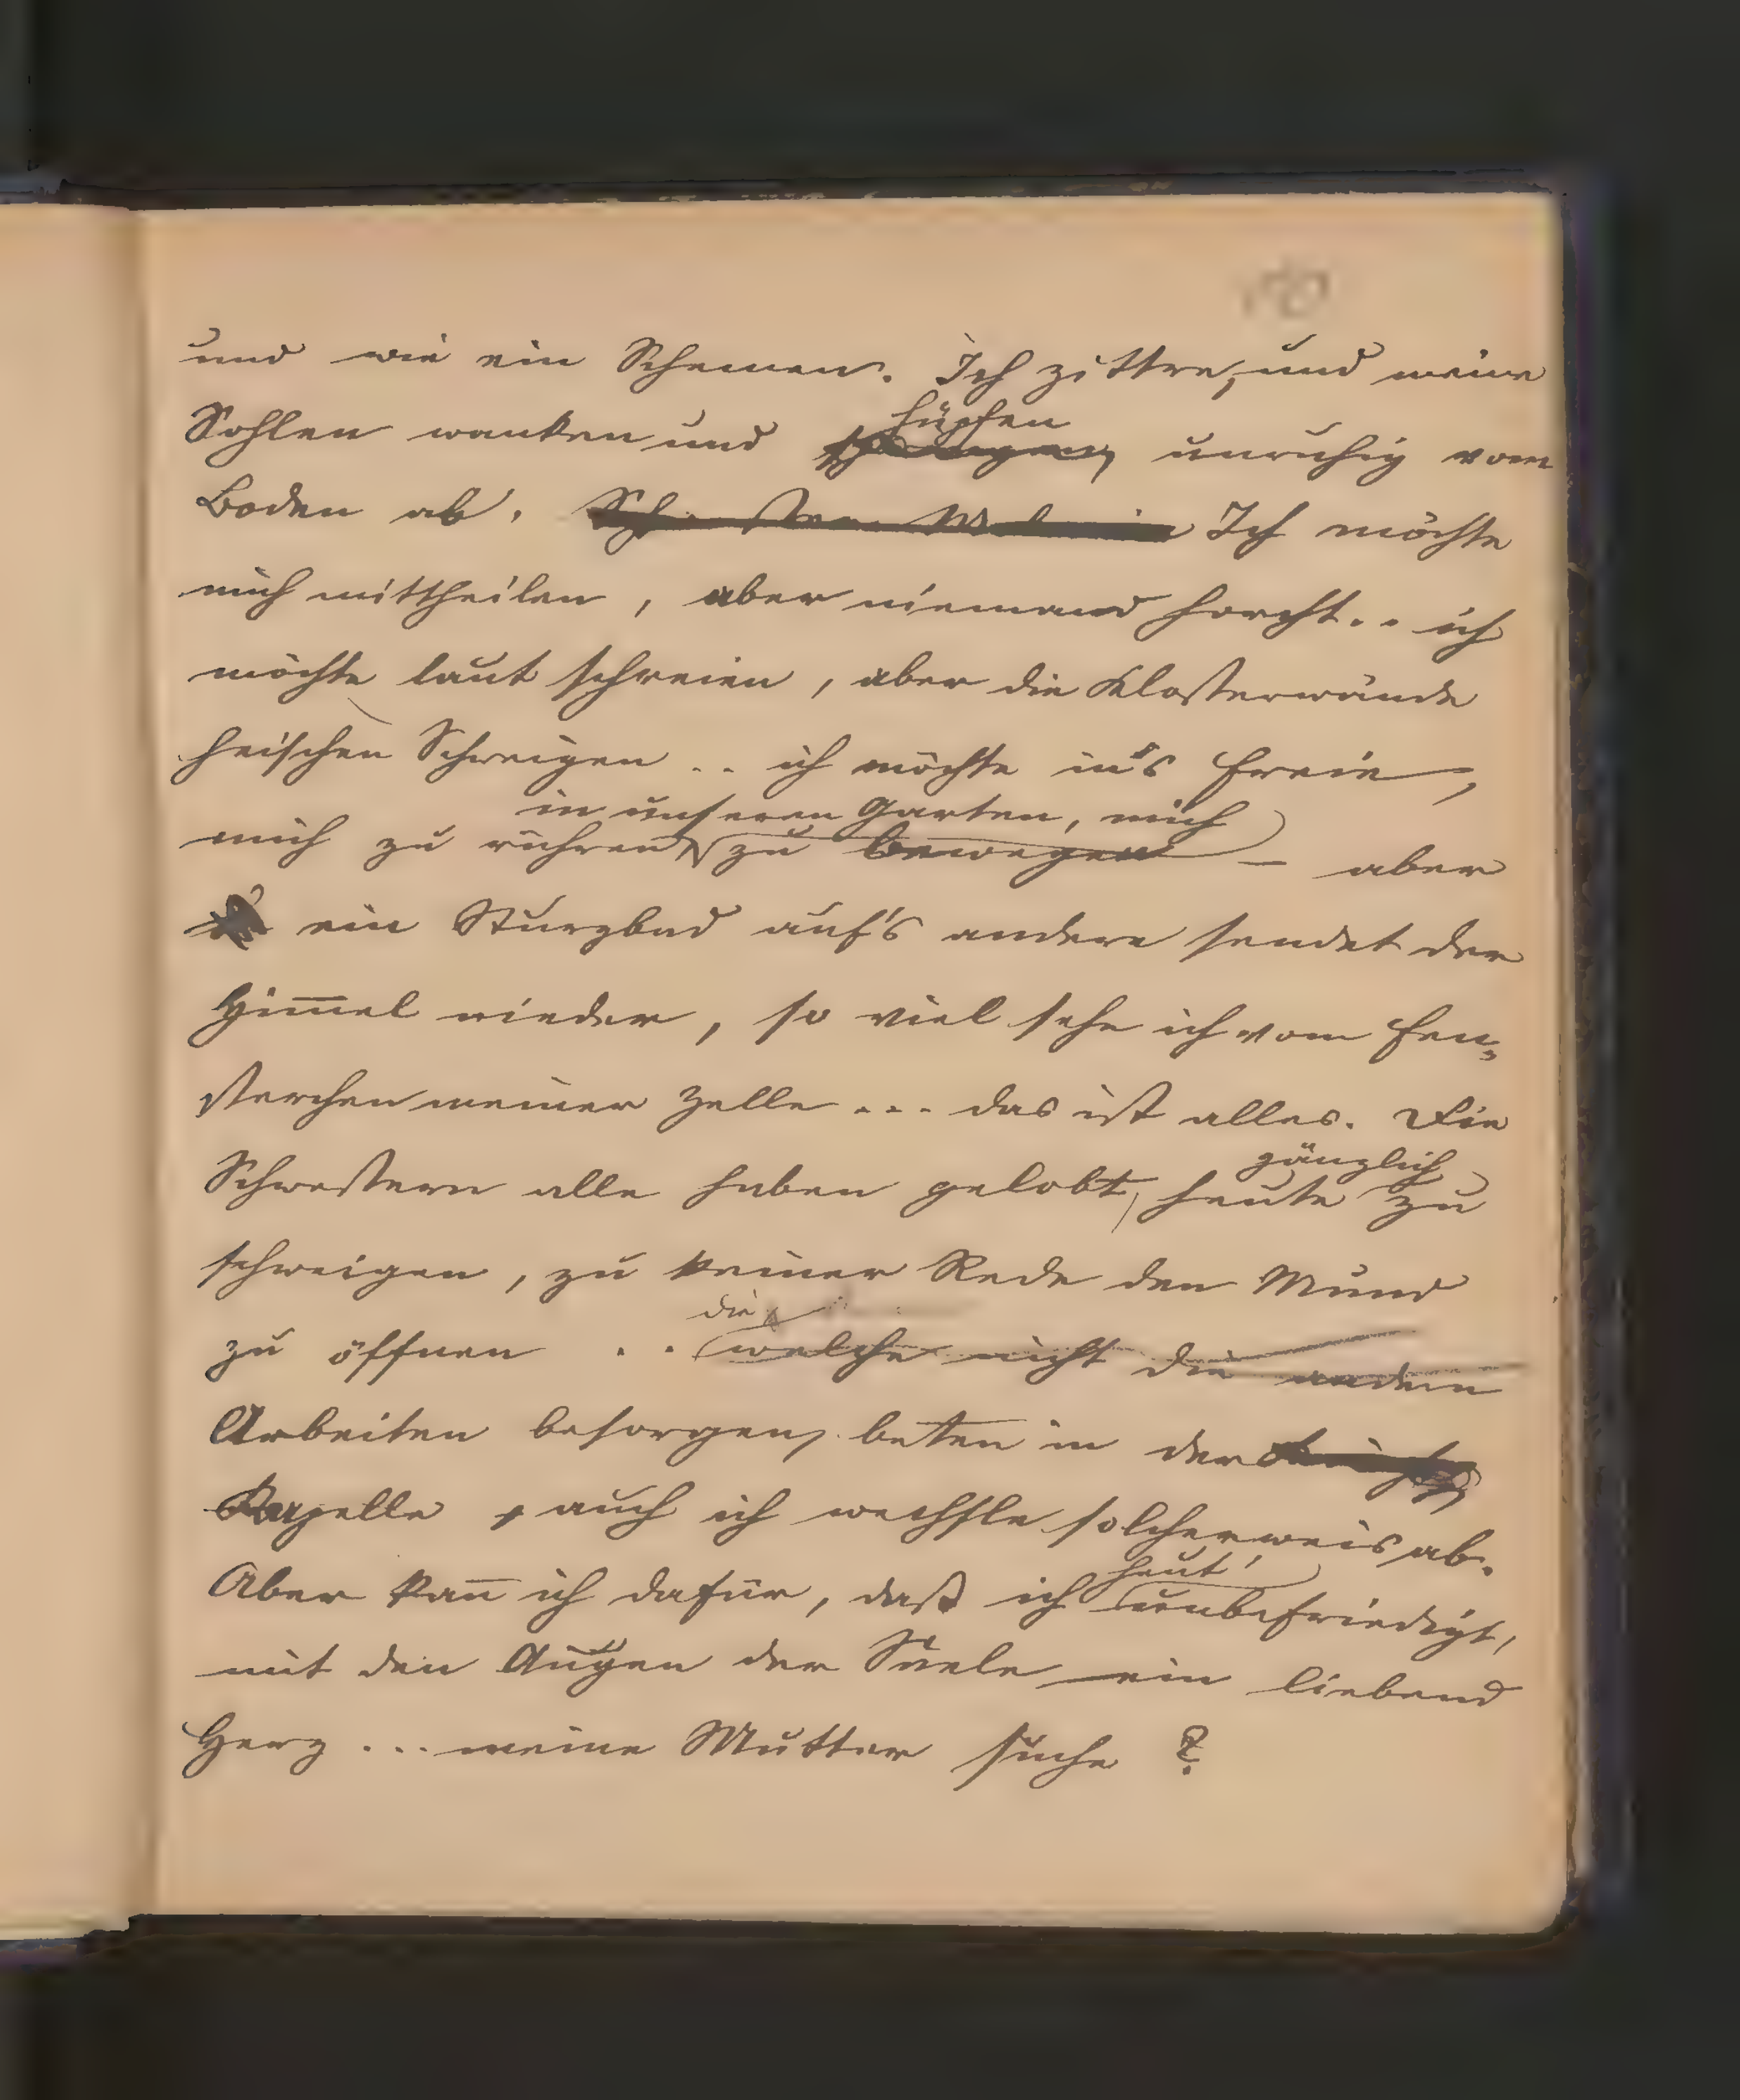 und wie ein Schemen. Ich zittre, und meine
hüpfen
Sohlen wanken und unruhig vom
Boden ab. Ich möchte
mich mittheilen, aber niemand horcht.. ich
möchte laut schreien, aber die Klosterwände
heischen Schweigen .. ich möchte in's Freie,
in unseren Garten, mich
mich zu rühren zu bewegen – aber
ein Sturzbad auf's andere sendet der
Him̅el nieder, so viel sehe ich vom Fen=
sterchen meiner Zelle ... das ist alles. Die
gänzlich
Schwestern alle haben gelobt, heute zu
schweigen, zu keiner Rede den Mund
die
zu öffnen .. welche nicht die andern
Arbeiten besorgen, beten in der
Kapelle, auch ich wechsle solcherweis ab.
heut'
Aber kan̅ ich dafür, daß ich unbefriedigt,
mit den Augen der Seele ein liebend
Herz ... meine Mutter suche?